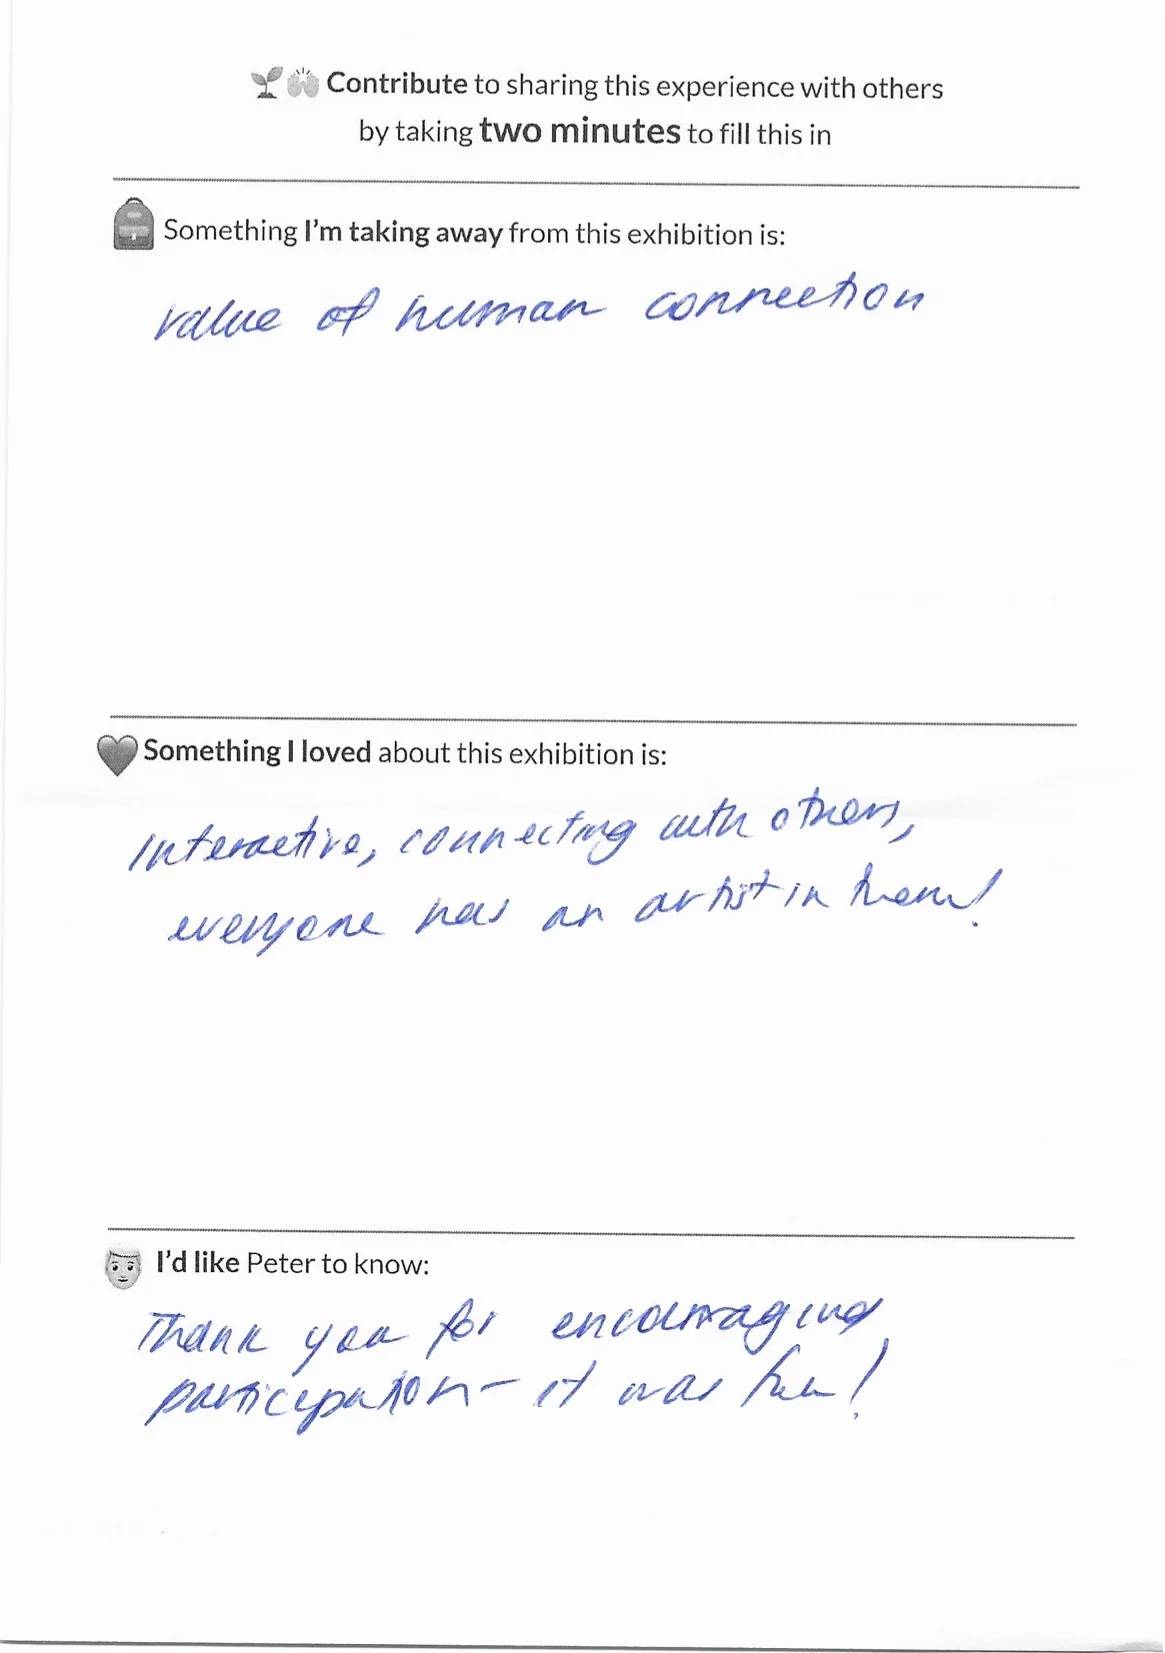 🌱🙌 Contribute to sharing this experience with others
by taking two minutes to fill this in
Something I'm taking away from this exhibition is:
value of human connection
Something I loved about this exhibition is:
Interactive, connecting with others,
everyone has an artist in them!
I'd like Peter to know:
Thank you for encouraging
participation - it was fun!